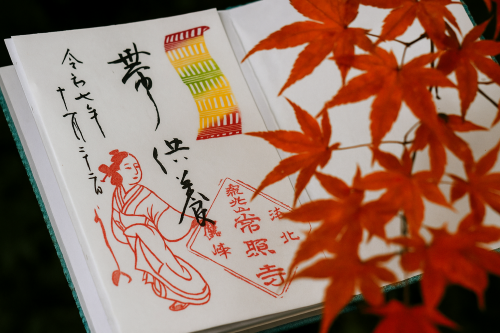 帯供養
令和七年
十一月二十二日
洛北
紫北山
常照寺
鷹峰